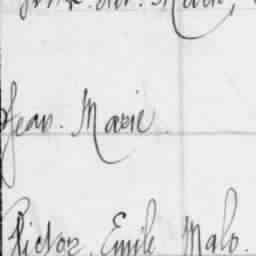 Jean. Marie.
Victor, Emile Malo.